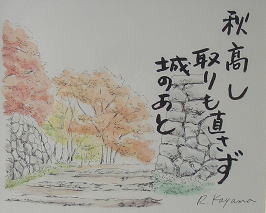 秋高し
取りも直さず
城のあと
R. Kayama